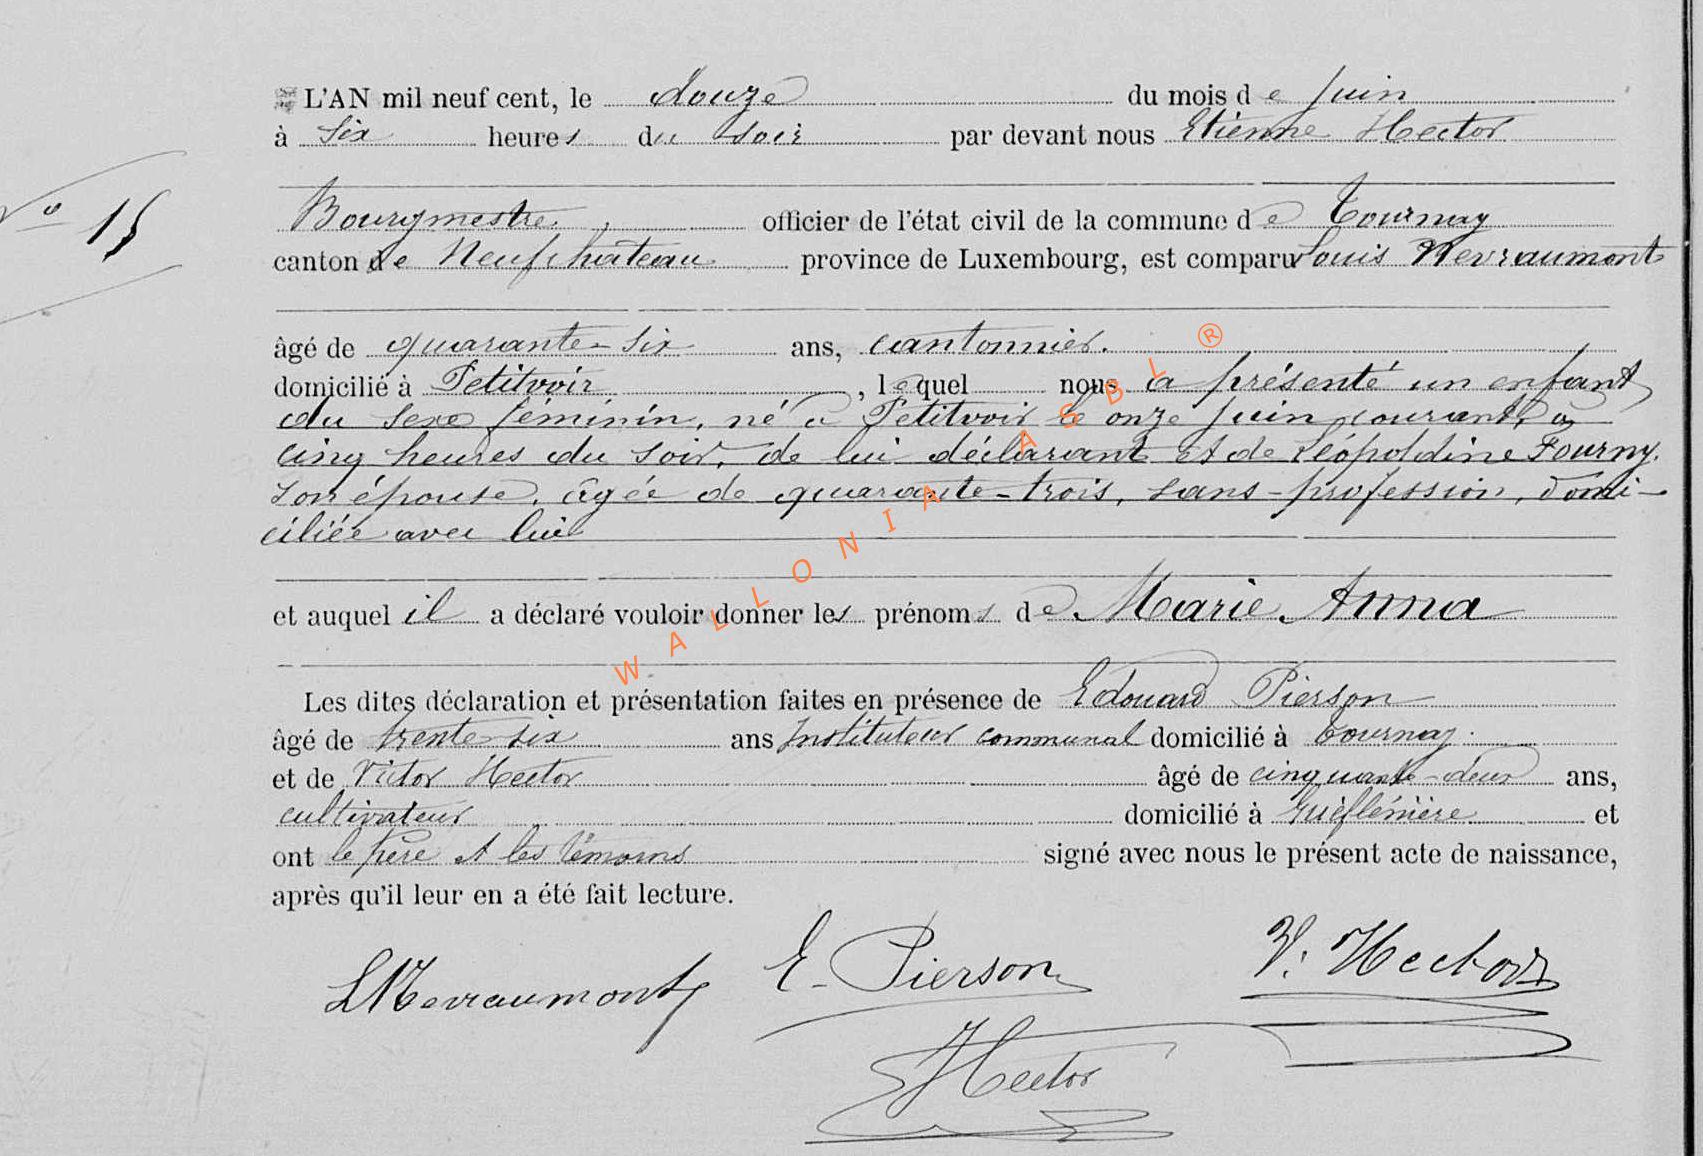 L'AN mil neuf cent, le douze du mois de juin
à six heures du soir par devant nous Etienne Hector
N° 15
Bourgmestre, officier de l'état civil de la commune de Tournay
canton de Neufchâteau province de Luxembourg, est comparu Louis Nevraumont
âgé de quarante-six ans, cantonnier.
domicilié à Petitvoir, lequel nous a présenté un enfant
du sexe féminin, né à Petitvoir le onze juin courant, à
cinq heures du soir, de lui déclarant et de Léopoldine Fourny,
son épouse, âgée de quarante-trois, sans-profession, domi-
ciliée avec lui
et auquel il a déclaré vouloir donner les prénoms de Marie Anna
Les dites déclaration et présentation faites en présence de Edouard Pierson
âgé de trente-six ans Instituteur communal domicilié à Tournay.
et de Victor Hector âgé de cinquante-deux ans,
cultivateur domicilié à et
ont le père et les témoins signé avec nous le présent acte de naissance,
après qu'il leur en a été fait lecture.
LNevraumont E. Pierson V. Hector
Hector
WALLONIA ASBL ®